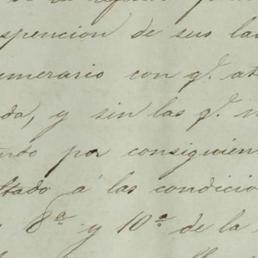 spencion de sus la
umerario con q.e at
da, y sin las q.e n
ndo por consiguien
ltado á las condicio
8.a y 10.a de la